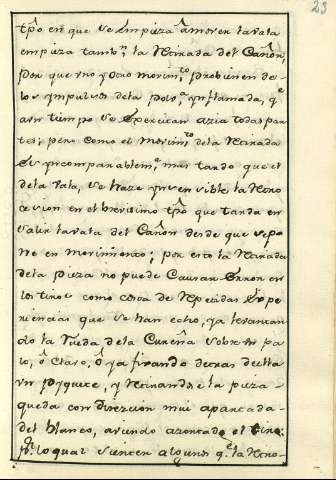 23
tpō en que se empieza â mover la vala
empieza tambn. la Retirada del Cañon,
por que uno y otro movim.to probienen de
los ympulsos dela polv.a ynflamada, q.e
a un tiempo se exercitan azia todas par
tes; pero como el movim.to dela Retirada
es yncomparablem.e mas tardo que el
dela vala, se haze ynvencible la Retro
cesion en el brevisimo tpō que tarda en
salir la vala del Cañon desde que se po
ne en movimiento; por esto la Retirada
dela pieza no puede Causar Error en
los tiros como consta de Repetidas Expe
riencias que se han echo, ya levantan
do la Rueda dela Cureña sobre un pa
lo, ô Clavo, ô ya fixando detras de ella
un Piquete, y Retirandose la pieza
queda con direccion mui apartada
del blanco, aviendo azertado el tiro:
p.r lo qual sienten algunos q.e la Retro-